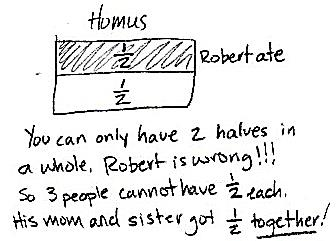 Homus
1/2 Robert ate
1/2
You can only have 2 halves in
a whole. Robert is wrong!!!
So 3 people cannot have 1/2 each.
His mom and sister got 1/2 together!